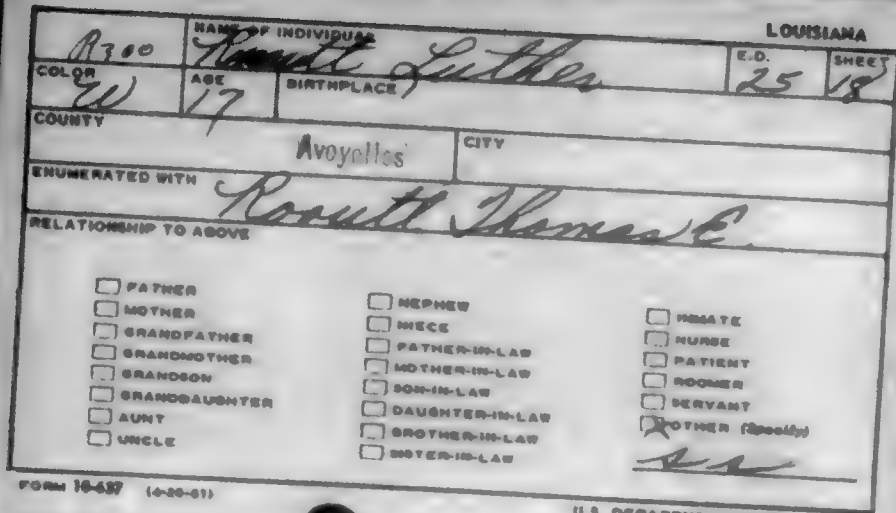 LOUISIANA
R300 NAME OF INDIVIDUAL Luther E.D. 25 SHEET 18
COLOR W AGE 17 BIRTHPLACE
COUNTY Avoyelles CITY
ENUMERATED WITH Thomas E.
RELATIONSHIP TO ABOVE
FATHER
MOTHER
GRANDFATHER
GRANDMOTHER
GRANDSON
GRANDDAUGHTER
AUNT
UNCLE
NEPHEW
NIECE
FATHER-IN-LAW
MOTHER-IN-LAW
SON-IN-LAW
DAUGHTER-IN-LAW
BROTHER-IN-LAW
SISTER-IN-LAW
INMATE
NURSE
PATIENT
ROOMER
SERVANT
OTHER (Specify)
s s
FORM 10-637 (6-20-61)
U.S.